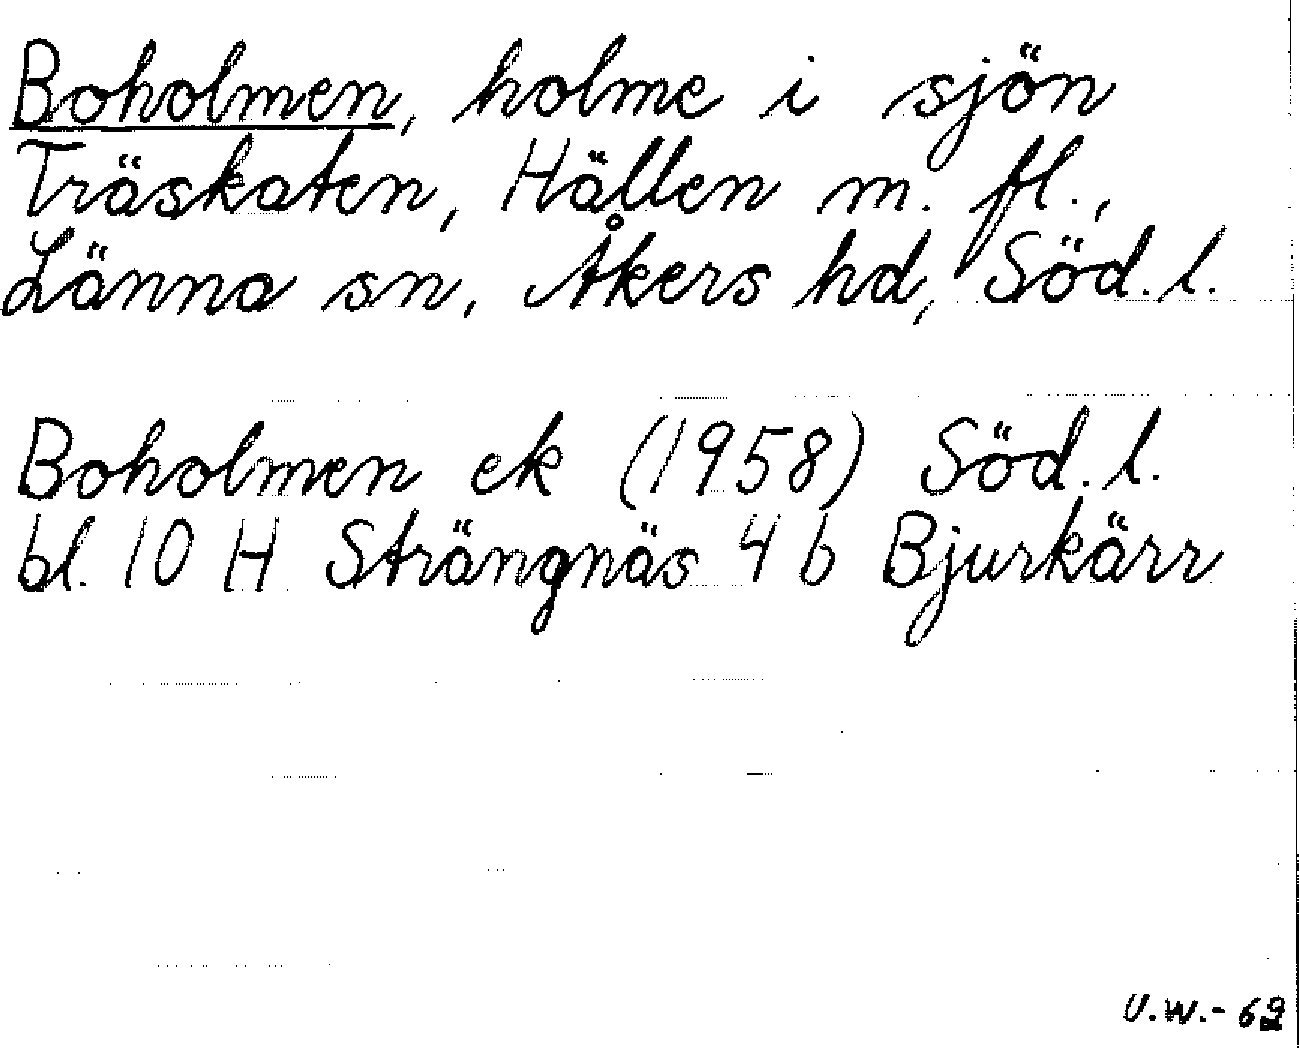 Boholmen, holme i sjön
Träskaten, Hällen m. fl.,
Länna sn, Åkers hd, Söd. l.
Boholmen ek (1958) Söd. l.
bl. 10 H Strängnäs 4 b Bjurkärr
U.W.-62